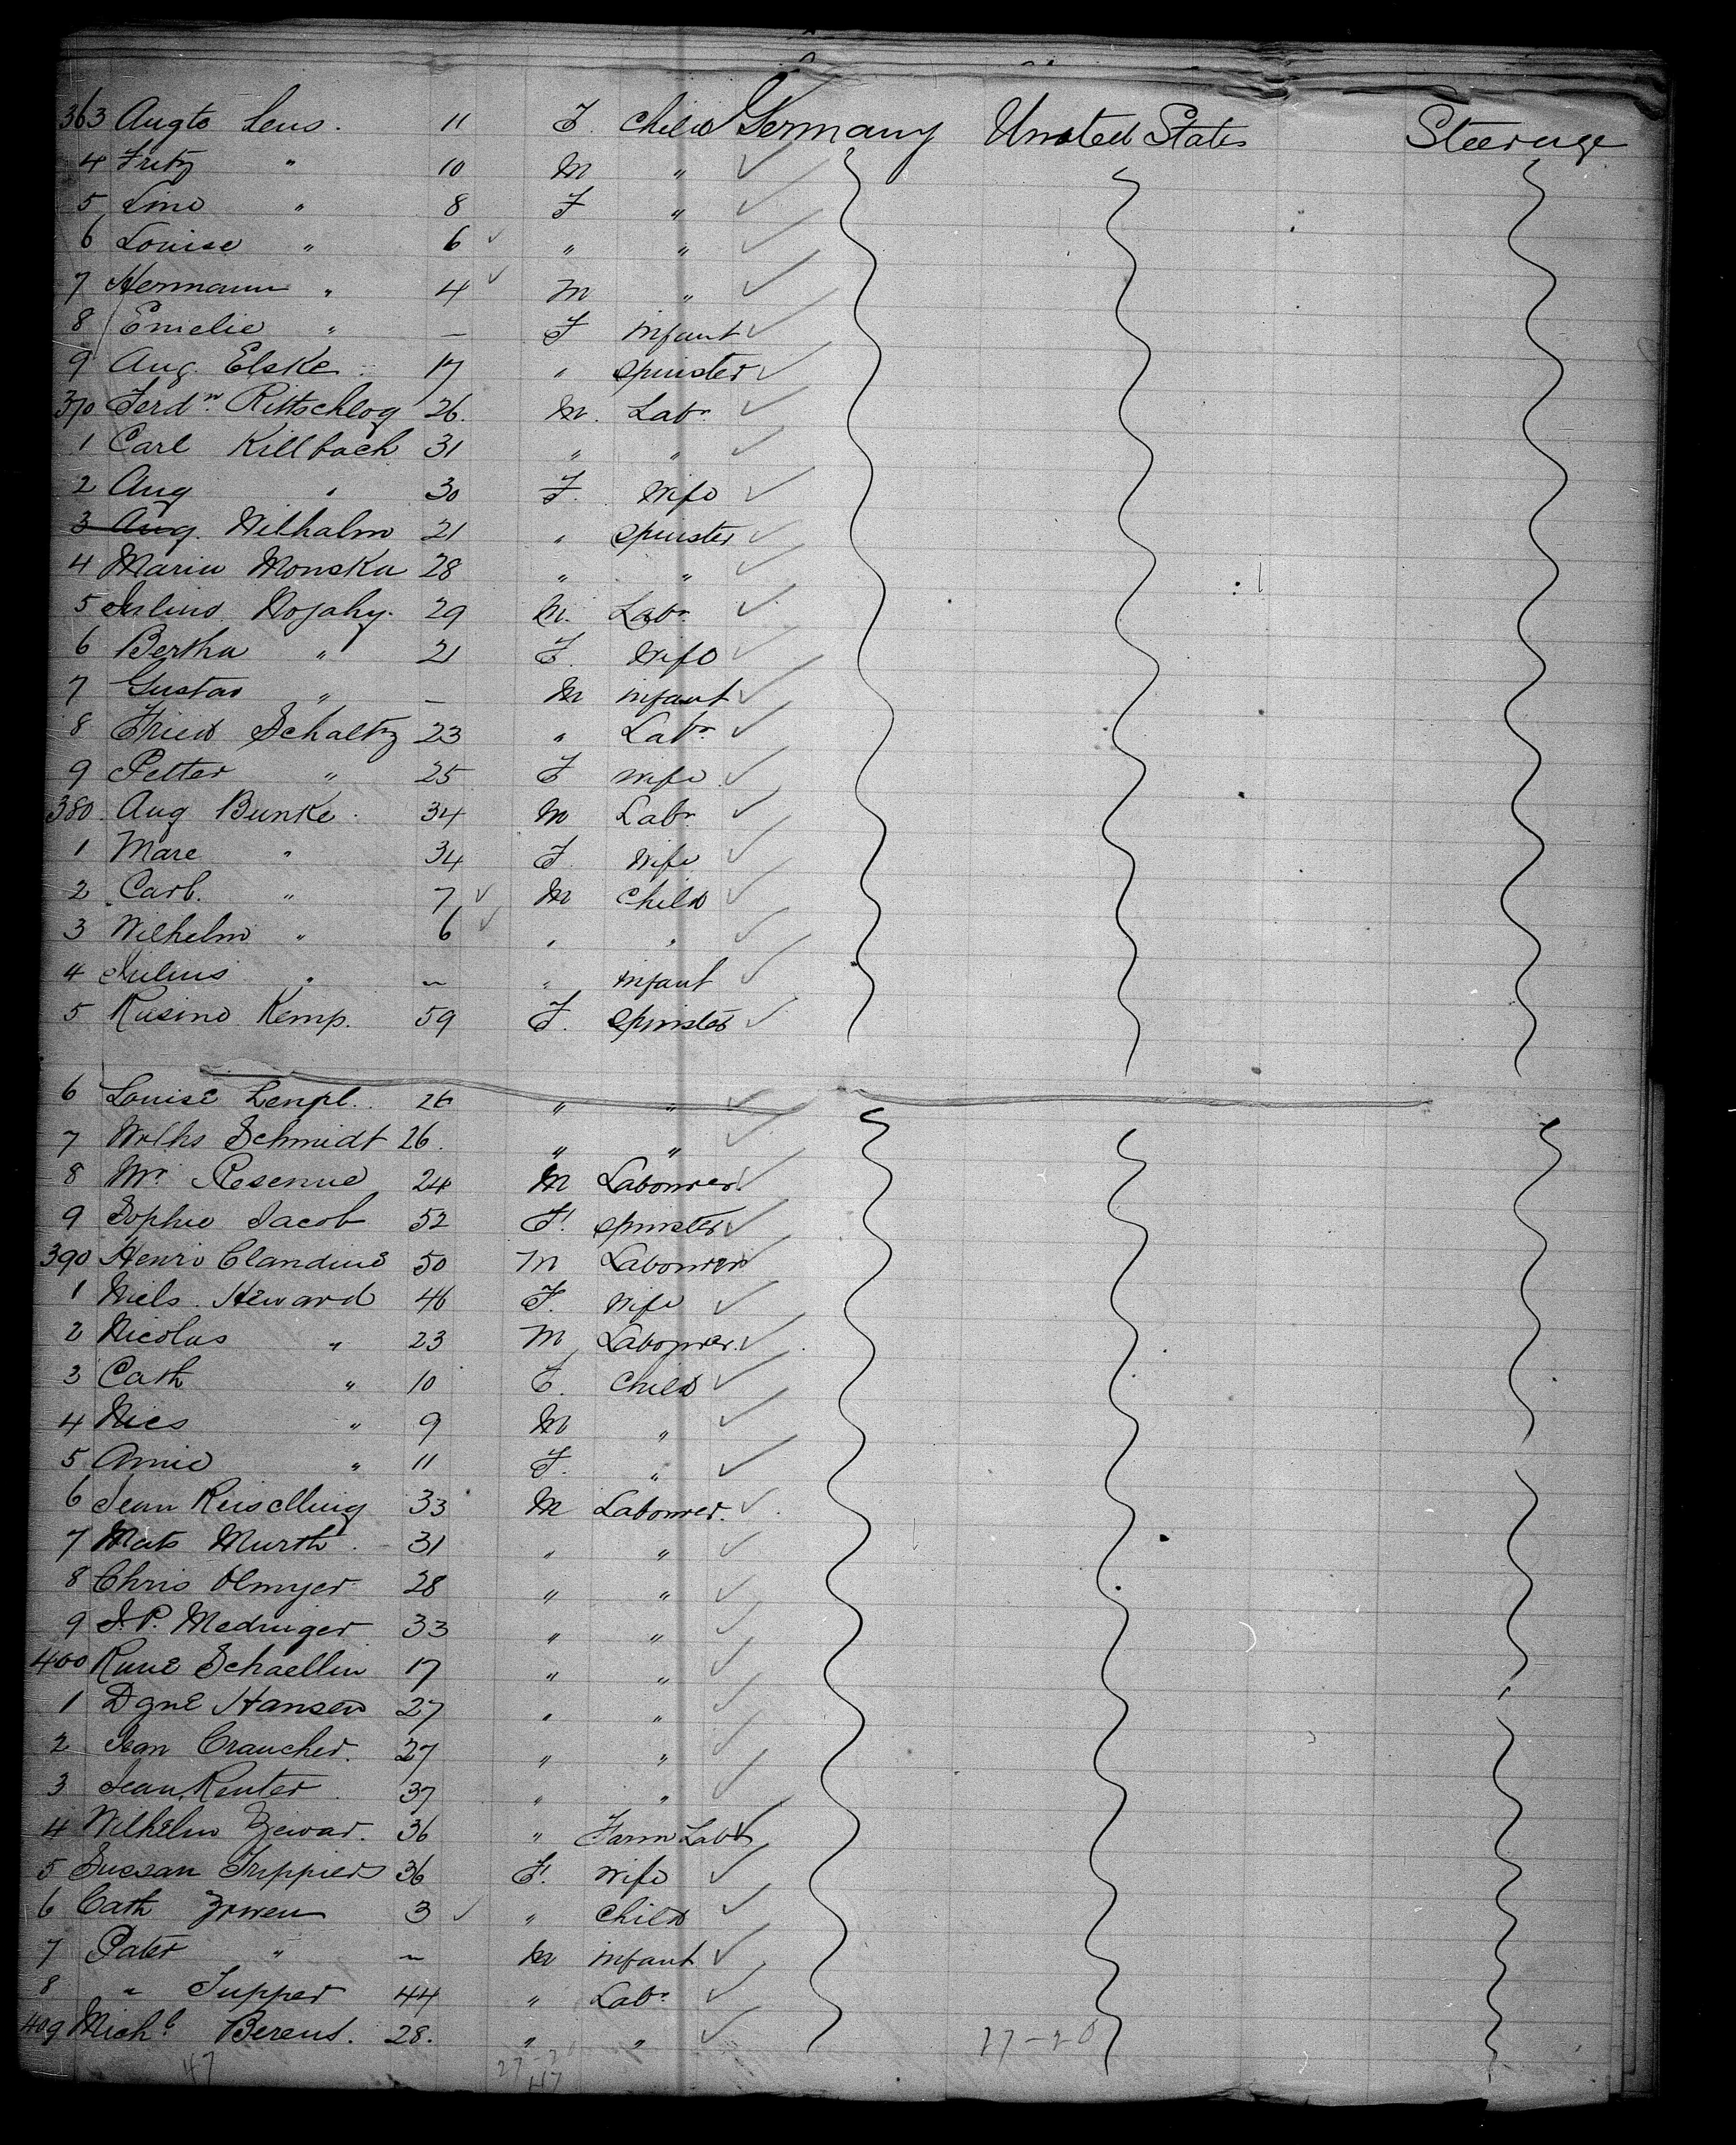 363 Augto Lens. 11 F. Child Germany United States Steerage
4 Fritz " 10 M "
5 Line " 8 F "
6 Louise " 6 " "
7 Hermann " 4 M "
8 Emelie " — F infant
9 Aug. Elske 17 " Spinster
370 Ferdn. Rittschlog 26. M. Labr.
1 Carl Killbach 31 " "
2 Aug " 30 F. Wife
3 Aug. Wilhalm 21 " Spinster
4 Maria Monska 28 " "
5 Julius 29 M. Labr.
6 Bertha " 21 F. Wife
7 Gustav " — M infant
8 Fried Schaltz 23 " Labr.
9 Petter " 25 F wife
380. Aug Bunke. 34 M Labr.
1 Mare " 34 F. Wife
2 Carl. " 7 M Child
3 Wilhelm " 6 " "
4 Julius " — " infant
5 Rusine Kemp. 59 F. Spinster
6 Louise 26 " "
7 Schmidt 26. " "
8 Wm. Resenue 24 M Labourer.
9 Sophie Jacob 52 F. Spinster
390 Henri Clandine 50 M Labourer
1 Niels. Heward 46 F. Wife
2 Nicolas " 23 M Labourer.
3 Cath " 10 F. Child
4 Nics " 9 M "
5 Annie " 11 F. "
6 Jean 33 M Labourer.
7 Mats Murth. 31 " "
8 Chris Olmyer 28 " "
9 J.P. Medinger 33 " "
400 Schaellin 17 " "
1 Hansen 27 " "
2 Jean Craucher. 27 " "
3 Jean Reuter 37 " "
4 Wilhelm 36 " Farm Labr
5 Suesan Trippiers 36 F. Wife
6 Cath 3 " Child
7 Pater " — M infant
8 " Supper 44 " Labr
409 Michl. Berens. 28. " "
27-20
47 27-20
47